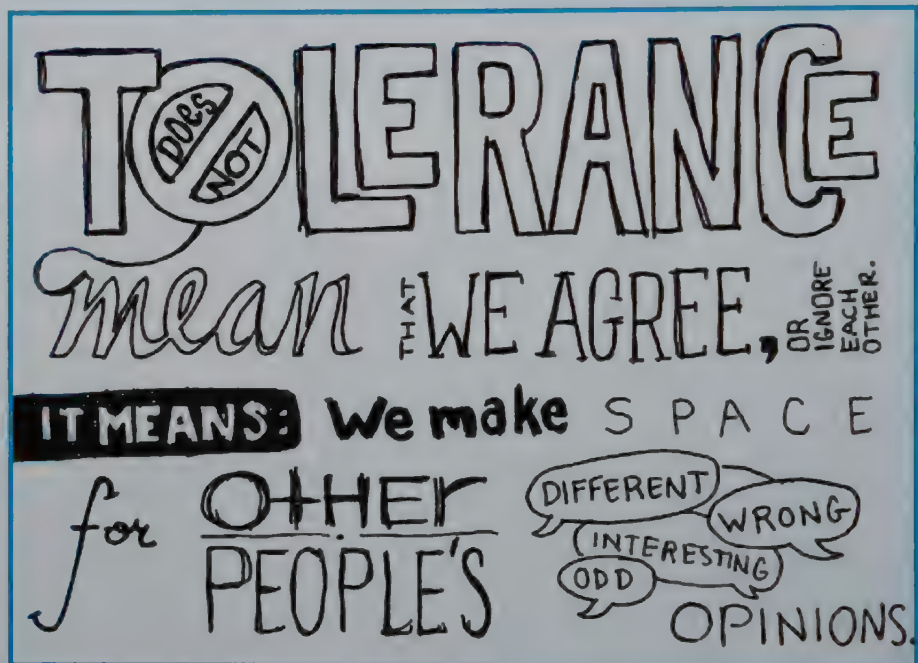 TOLERANCE
DOES
NOT
mean THAT WE AGREE, OR
IGNORE
EACH
OTHER.
IT MEANS: We make SPACE
for OtHEr
PEOPLE'S
DIFFERENT
WRONG
INTERESTING
ODD
OPINIONS.